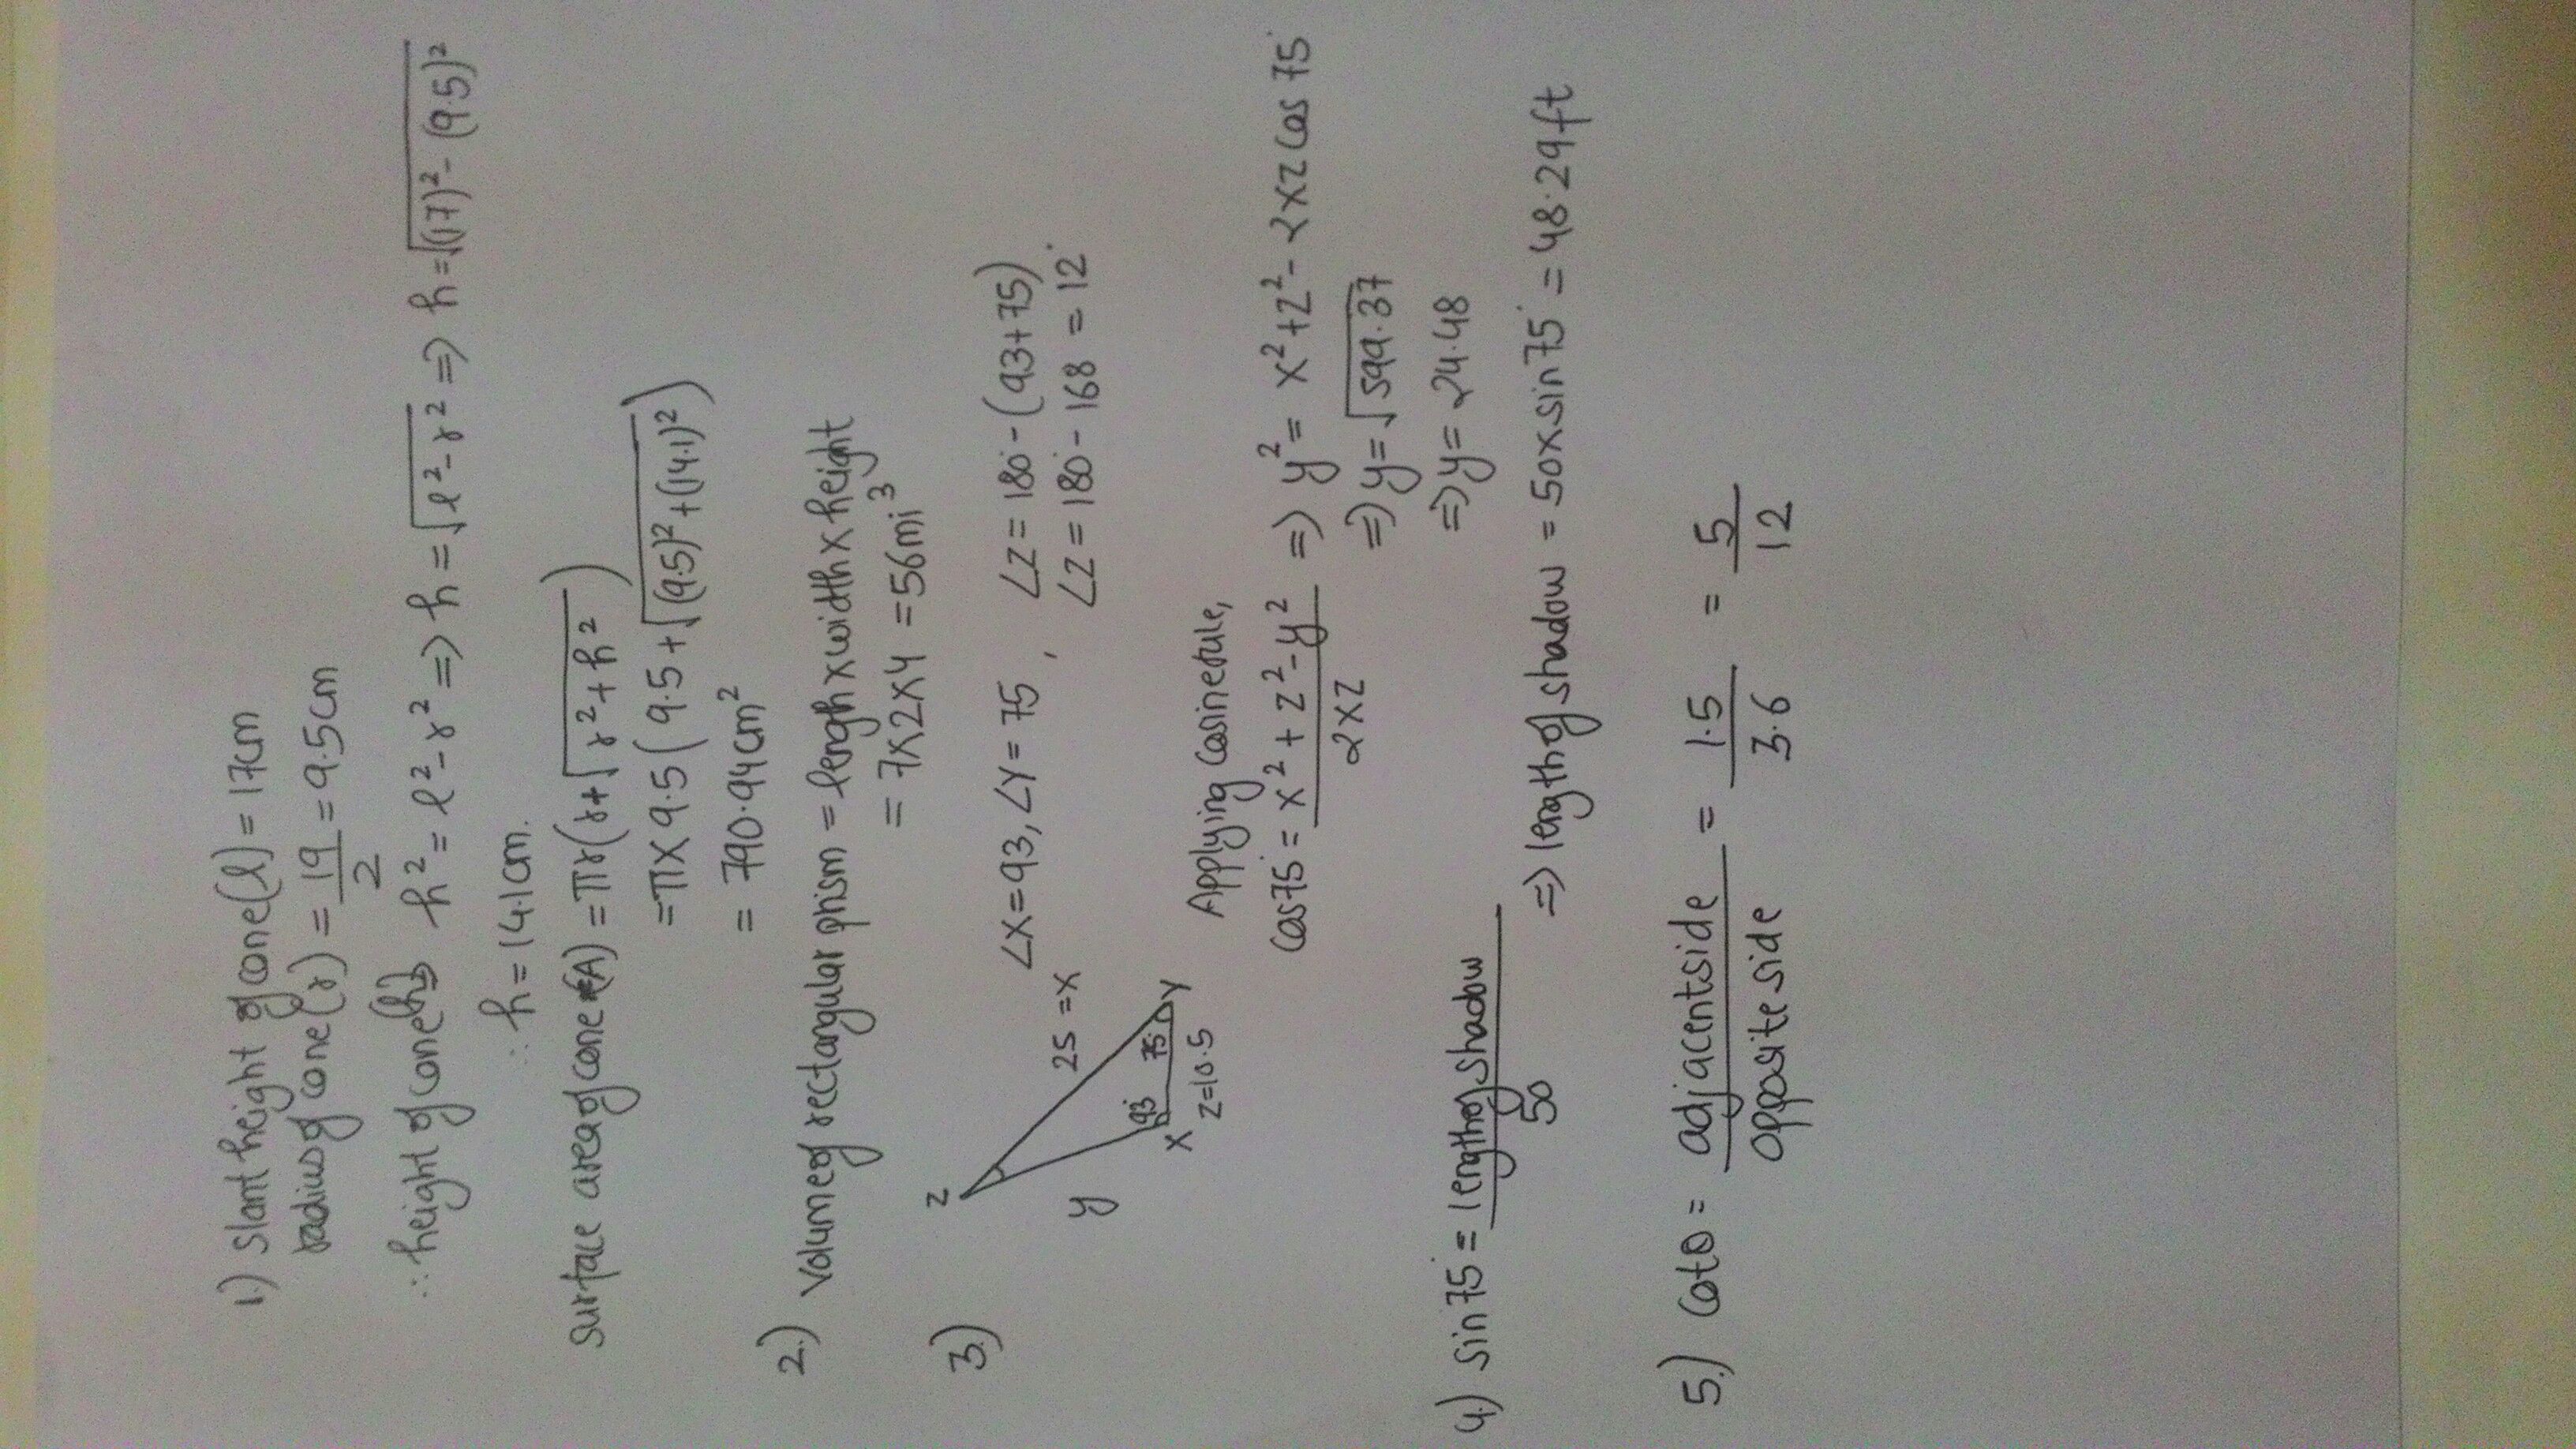 1.) Slant height of cone (l) = 17cm
radius of cone (r) = 19/2 = 9.5cm
∴ height of cone(h) h² = l² - r² => h = √(l² - r²) => h = √((17)² - (9.5)²)
∴ h = 14.1cm.
surface area of cone (A) = πr(r + √(r² + h²))
= π x 9.5 (9.5 + √((9.5)² + (14.1)²))
= 790.94cm²
2.) volume of rectangular prism = length x width x height
= 7x2x4 = 56mi³
3.)
Z
y
25 = x
93°
75°
X
Y
z=10.5
∠X = 93, ∠Y = 75 , ∠Z = 180° - (93+75)
∠Z = 180° - 168 = 12°
Applying Cosine rule,
Cos75° = (x² + z² - y²)/(2xz) => y² = x² + z² - 2xz Cos 75°
=> y = √599.37
=> y = 24.48
4.) sin75° = length of shadow/50
=> length of shadow = 50 x sin75° = 48.29ft
5.) Cotθ = adjacent side/opposite side = 1.5/3.6 = 5/12